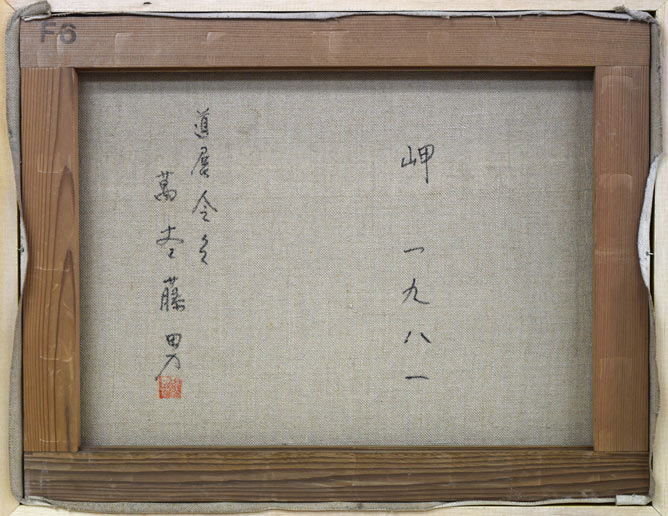 F6
岬 一九八一
道展会
萬 藤男